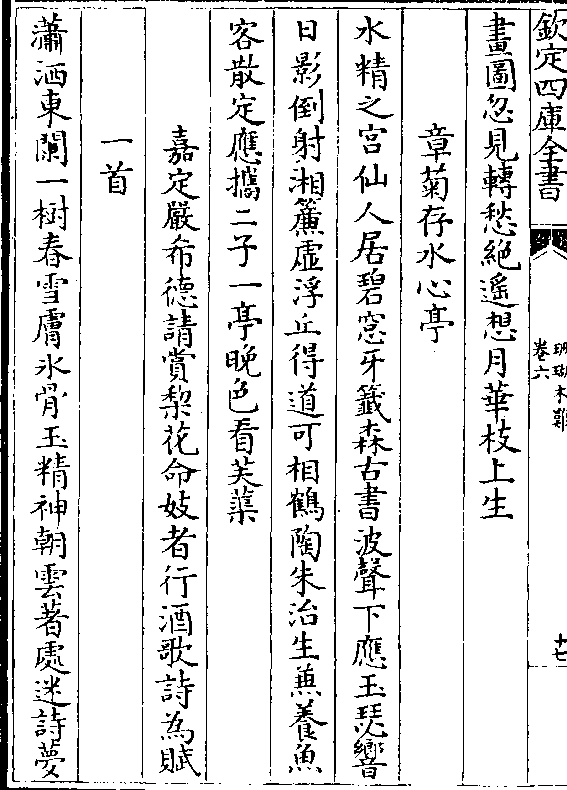 欽定四庫全書
珊瑚木難
卷六
十七
畫圖忽見轉愁絕遥想月華枝上生
章菊存水心亭
水精之宮仙人居碧窓牙籤森古書波聲下應玉瑟響
日影倒射湘簾虚浮丘得道可相鶴陶朱治生兼養魚
客散定應攜二子一亭晚色看芙蕖
嘉定嚴希德請賞梨花命妓者行酒歌詩為賦
一首
瀟洒東闌一樹春雪膚氷骨玉精神朝雲著處迷詩夢